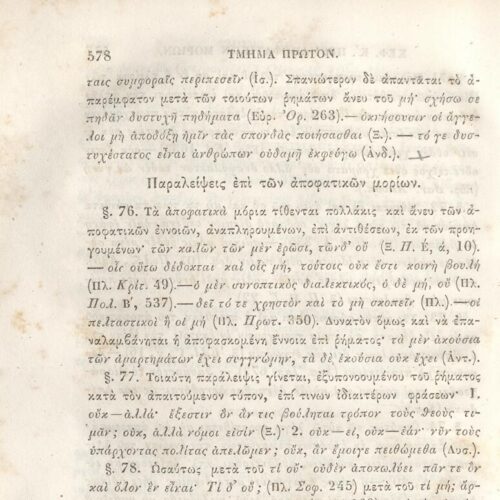 578 ΤΜΗΜΑ ΠΡΩΤΟΝ.
ταις συμφοραῖς περιπεσεῖν (Ισ.). Σπανιώτερον δὲ απαντᾶται τὸ ἀ-
παρέμφατον μετὰ τῶν τοιούτων ῥημάτων άνευ τοῦ μή· σχήσω σε
πηδᾶν δυστυχῆ πηδήματα (Εὐρ. Ὀρ. 263).—ὀκνήσουσιν οἱ ἄγγε-
λοι μὴ ἀποδόξῃ ἡμῖν τὰς σπονδὰς ποιήσασθαι (Ξ.).—τό γε δυσ-
τυχέστατος εἶναι ἀνθρώπων οὐδαμῆ ἐκφεύγω (Ἀνδ.).
Παραλείψεις ἐπὶ τῶν ἀποφατικῶν μορίων.
§. 76. Τὰ ἀποφατικὰ μόρια τίθενται πολλάκις καὶ ἄνευ τῶν ἀ-
ποφατικῶν ἐννοιῶν, ἀναπληρουμένων, ἐπὶ ἀντιθέσεων, ἐκ τῶν προη-
γουμένων· τῶν καλῶν τῶν μὲν ἐρῶσι, τῶνδ᾽ οὔ (Ξ. Π. Ε, ά, 10).
—οἷς οὕτω δέδοκται καὶ οἷς μή, τούτοις οὐκ ἔστι κοινὴ βουλὴ
(Πλ. Κρίτ. 49).—ὁ μὲν συνοπτικὸς διαλεκτικός, ὁ δὲ μή, οὔ (Πλ.
Πολ. Β΄, 537).—δεῖ τό τε χρηστὸν καὶ τὸ μὴ σκοπεῖν (Πλ.).—οἱ
πελταστικοὶ ἢ οἱ μή (Πλ. Πρωτ. 350). Δυνατὸν ὅμως καὶ νὰ ἐπα-
ναλαμβάνηται ἡ ἀποφασκομένη ἔννοια ἐπὶ ῥήματος· τὰ μὲν ἀκούσια
τῶν ἁμαρτημάτων ἔχει συγγνώμην, τὰ δὲ ἑκούσια οὐκ ἔχει (Ἀντ.).
§. 77. Τοιαύτη παράλειψις γίνεται, ἐξυπονοουμένου τοῦ ῥήματος
κατὰ τὸν ἀπαιτούμενον τύπον, ἐπί τινων ἰδιαιτέρων φράσεων· 1.
οὐκ—ἀλλά· ἔξεστιν ὃν ἄν τις βούληται τρόπον τοὺς θεοὺς τι-
μᾶν; οὐκ, ἀλλὰ νόμοι εἰσίν (Ξ.)· 2. οὐκ—εἰ, οὐκ—ἐάν· νῦν τοὺς
ὑπάρχοντας πολίτας ἀπελῶμεν; οὐκ, ἂν ἔμοιγε πειθώμεθα (Λυσ.).
§. 78. Ὡσαύτως μετὰ τοῦ τί οὔ· οὐδὲν ἀποκωλύει πᾶν τε ὂν
καὶ ὅλον ἓν εἶναι· Τί δ᾽ οὔ; (Πλ. Σοφ. 245) μετὰ τοῦ τί μή;